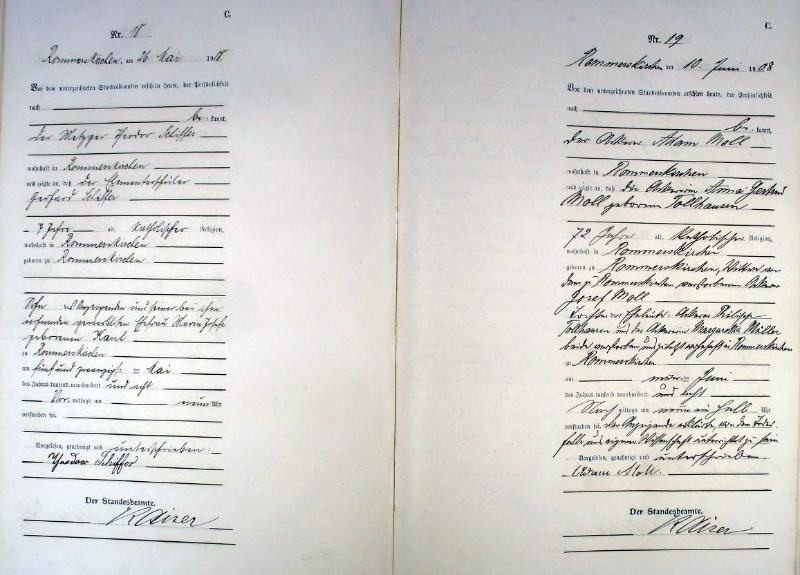 C.
Nr. 18
Rommerskirchen, am 26 Mai 19
Vor dem unterzeichneten Standesbeamten erschien heute, der Persönlichkeit
nach
be- kannt,
der Metzger Theodor Schiffer
wohnhaft in Rommerskirchen
und zeigte an, daß der Elementarschüler
Gerhard Schiffer
7 Jahre alt, katholischer Religion,
wohnhaft in Rommerskirchen
geboren zu Rommerskirchen
Sohn des Anzeigenden und seiner bei ihm
Ehefrau Maria
geborenen
zu Rommerskirchen
am fünf und zwanzigsten Mai
des Jahres tausend neunhundert und acht
Vor mittags um neun Uhr
verstorben sei.
Vorgelesen, genehmigt und unterschrieben:
Theodor Schiffer
Der Standesbeamte.
C.
Nr. 19
Rommerskirchen am 10. Juni 1908
Vor dem unterzeichneten Standesbeamten erschien heute, der Persönlichkeit
nach
be- kannt,
der Ackerer Adam Moll
wohnhaft in Rommerskirchen
und zeigte an, daß die Ackerin Anna
Moll geborene Tollhausen
72 Jahre alt, katholischer Religion,
wohnhaft in Rommerskirchen
geboren zu Rommerskirchen, Witwe von
dem zu Rommerskirchen verstorbenen Ackerer
Josef Moll
Tochter der Eheleute Ackerer
Tollhausen und der Ackerin Margaretha Müller
beide verstorben und zuletzt wohnhaft in Rommerskirchen
zu Rommerskirchen
am Juni
des Jahres tausend neunhundert und acht
Nach mittags um neun ein halb Uhr
verstorben sei. Der Anzeigende erklärte, von dem Todes-
falle aus eigener Wissenschaft unterrichtet zu sein
Vorgelesen, genehmigt und unterschrieben.
Adam Moll.
Der Standesbeamte.